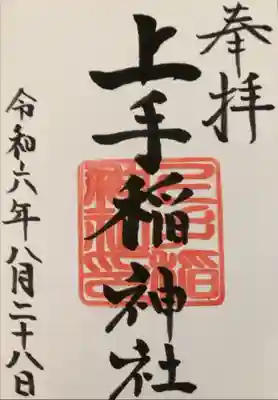 奉拝
上手稲神社
令和六年八月二十八日